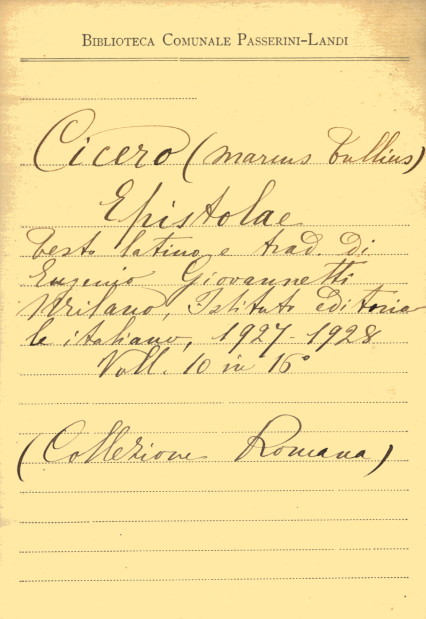 BIBLIOTECA COMUNALE PASSERINI-LANDI
Cicero (Marcus Tullius)
Epistolae
testo latino e trad. di
Eugenio Giovannetti
Milano, Istituto editoria
le italiano, 1927-1928
Voll. 10 in 16°
(Collezione Romana)